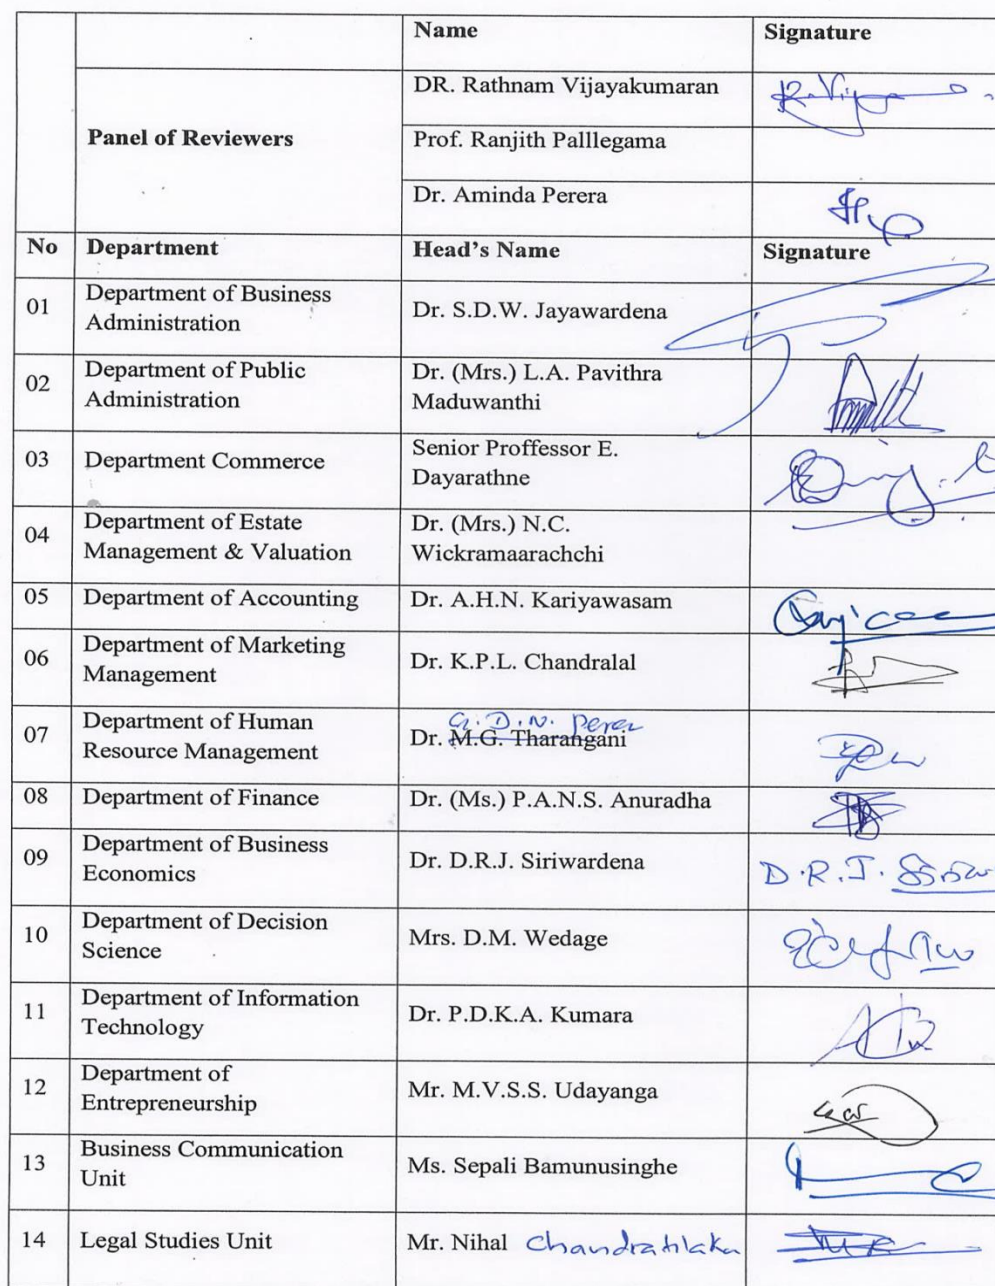 Name Signature
Panel of Reviewers
DR. Rathnam Vijayakumaran
Prof. Ranjith Palllegama
Dr. Aminda Perera
No Department Head's Name Signature
01 Department of Business
Administration
Dr. S.D.W. Jayawardena
02 Department of Public
Administration
Dr. (Mrs.) L.A. Pavithra
Maduwanthi
03 Department Commerce
Senior Proffessor E.
Dayarathne
04 Department of Estate
Management & Valuation
Dr. (Mrs.) N.C.
Wickramaarachchi
05 Department of Accounting Dr. A.H.N. Kariyawasam
06 Department of Marketing
Management
Dr. K.P.L. Chandralal
07 Department of Human
Resource Management
G.D.N. Perera
Dr. M.G. Tharangani
08 Department of Finance Dr. (Ms.) P.A.N.S. Anuradha
09 Department of Business
Economics
Dr. D.R.J. Siriwardena
D.R.J.
10 Department of Decision
Science
Mrs. D.M. Wedage
11 Department of Information
Technology
Dr. P.D.K.A. Kumara
12 Department of
Entrepreneurship
Mr. M.V.S.S. Udayanga
13 Business Communication
Unit
Ms. Sepali Bamunusinghe
14 Legal Studies Unit Mr. Nihal Chandratilaka